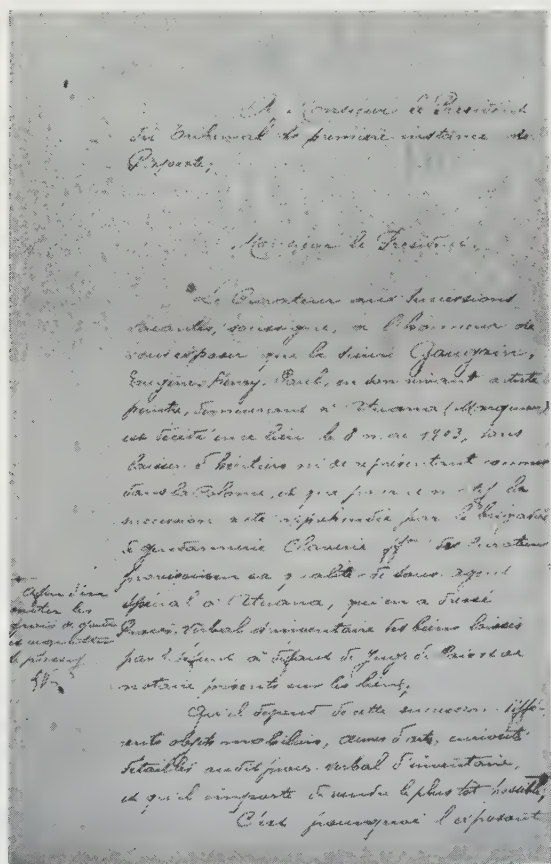 A Monsieur le Président
du Tribunal de première instance de
Papeete,
Monsieur le Président,
Le Curateur aux Successions
vacantes, soussigné, a l'honneur de
vous exposer que le sieur Gauguin,
Eugène, Henry, Paul, en son vivant artiste
peintre, demeurant à Atuana (Marquises)
est décédé en ce lieu le 8 mai 1903, sans
laisser d'héritiers ni de représentant connus
dans la Colonie, et que pour ce motif la
succession a été appréhendée par le brigadier
de gendarmerie Claverie
provisoire en sa qualité de sous agent
spécial à l'Atuana, qui en a dressé
Procès-Verbal d'inventaire des biens laissés
par le défunt à défaut de Juge de Paix et de
notaire présents sur les lieux;
Afin d'en
éviter les
frais de garde
et
Qu'il dépend de cette succession diffé-
rents objets mobiliers, œuvres d'arts, curiosités
détaillés au dit procès-verbal d'inventaire,
et qu'il importe de vendre le plus tôt possible;
C'est pourquoi l'exposant